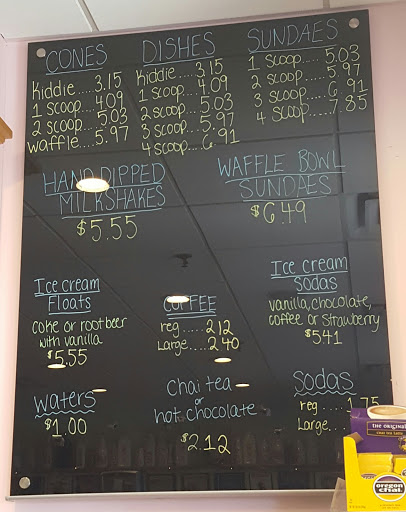 CONES
Kiddie....3.15
1 scoop...4.09
2 scoop...5.03
waffle....5.97
DISHES
Kiddie....3.15
1 scoop....4.09
2 scoop....5.03
3 scoop....5.97
4 scoop....6.91
SUNDAES
1 scoop.....5.03
2 scoop.....5.97
3 scoop.....6.91
4 scoop.....7.85
HAND DIPPED
MILKSHAKES
$5.55
WAFFLE BOWL
SUNDAES
$6.49
Ice cream
Floats
coke or rootbeer
with vanilla
$5.55
COFFEE
reg.....2.12
Large....2.40
Ice cream
Sodas
vanilla, chocolate,
coffee or strawberry
$5.41
waters
$1.00
chai tea
or
hot chocolate
$2.12
Sodas
reg....1.75
Large..
the original
chai tea latte
oregon
chai